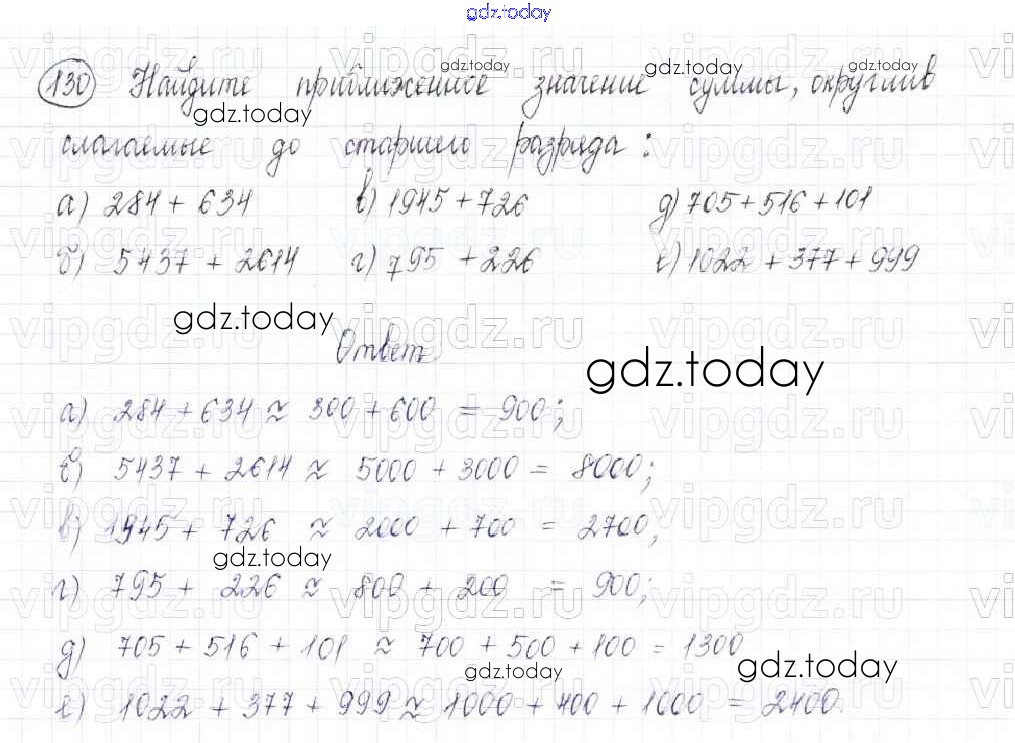 gdz.today
130 Найдите приближенное значение суммы, округлив
слагаемые до старшего разряда:
а) 284 + 634 в) 1945 + 726 д) 705 + 516 + 101
б) 5437 + 2614 г) 795 + 226 е) 1022 + 377 + 999
gdz.today
Ответ
gdz.today
а) 284 + 634 ≈ 300 + 600 = 900;
б) 5437 + 2614 ≈ 5000 + 3000 = 8000;
в) 1945 + 726 ≈ 2000 + 700 = 2700;
gdz.today
г) 795 + 226 ≈ 800 + 200 = 900;
д) 705 + 516 + 101 ≈ 700 + 500 + 100 = 1300
gdz.today gdz.today
е) 1022 + 377 + 999 ≈ 1000 + 400 + 1000 = 2400.